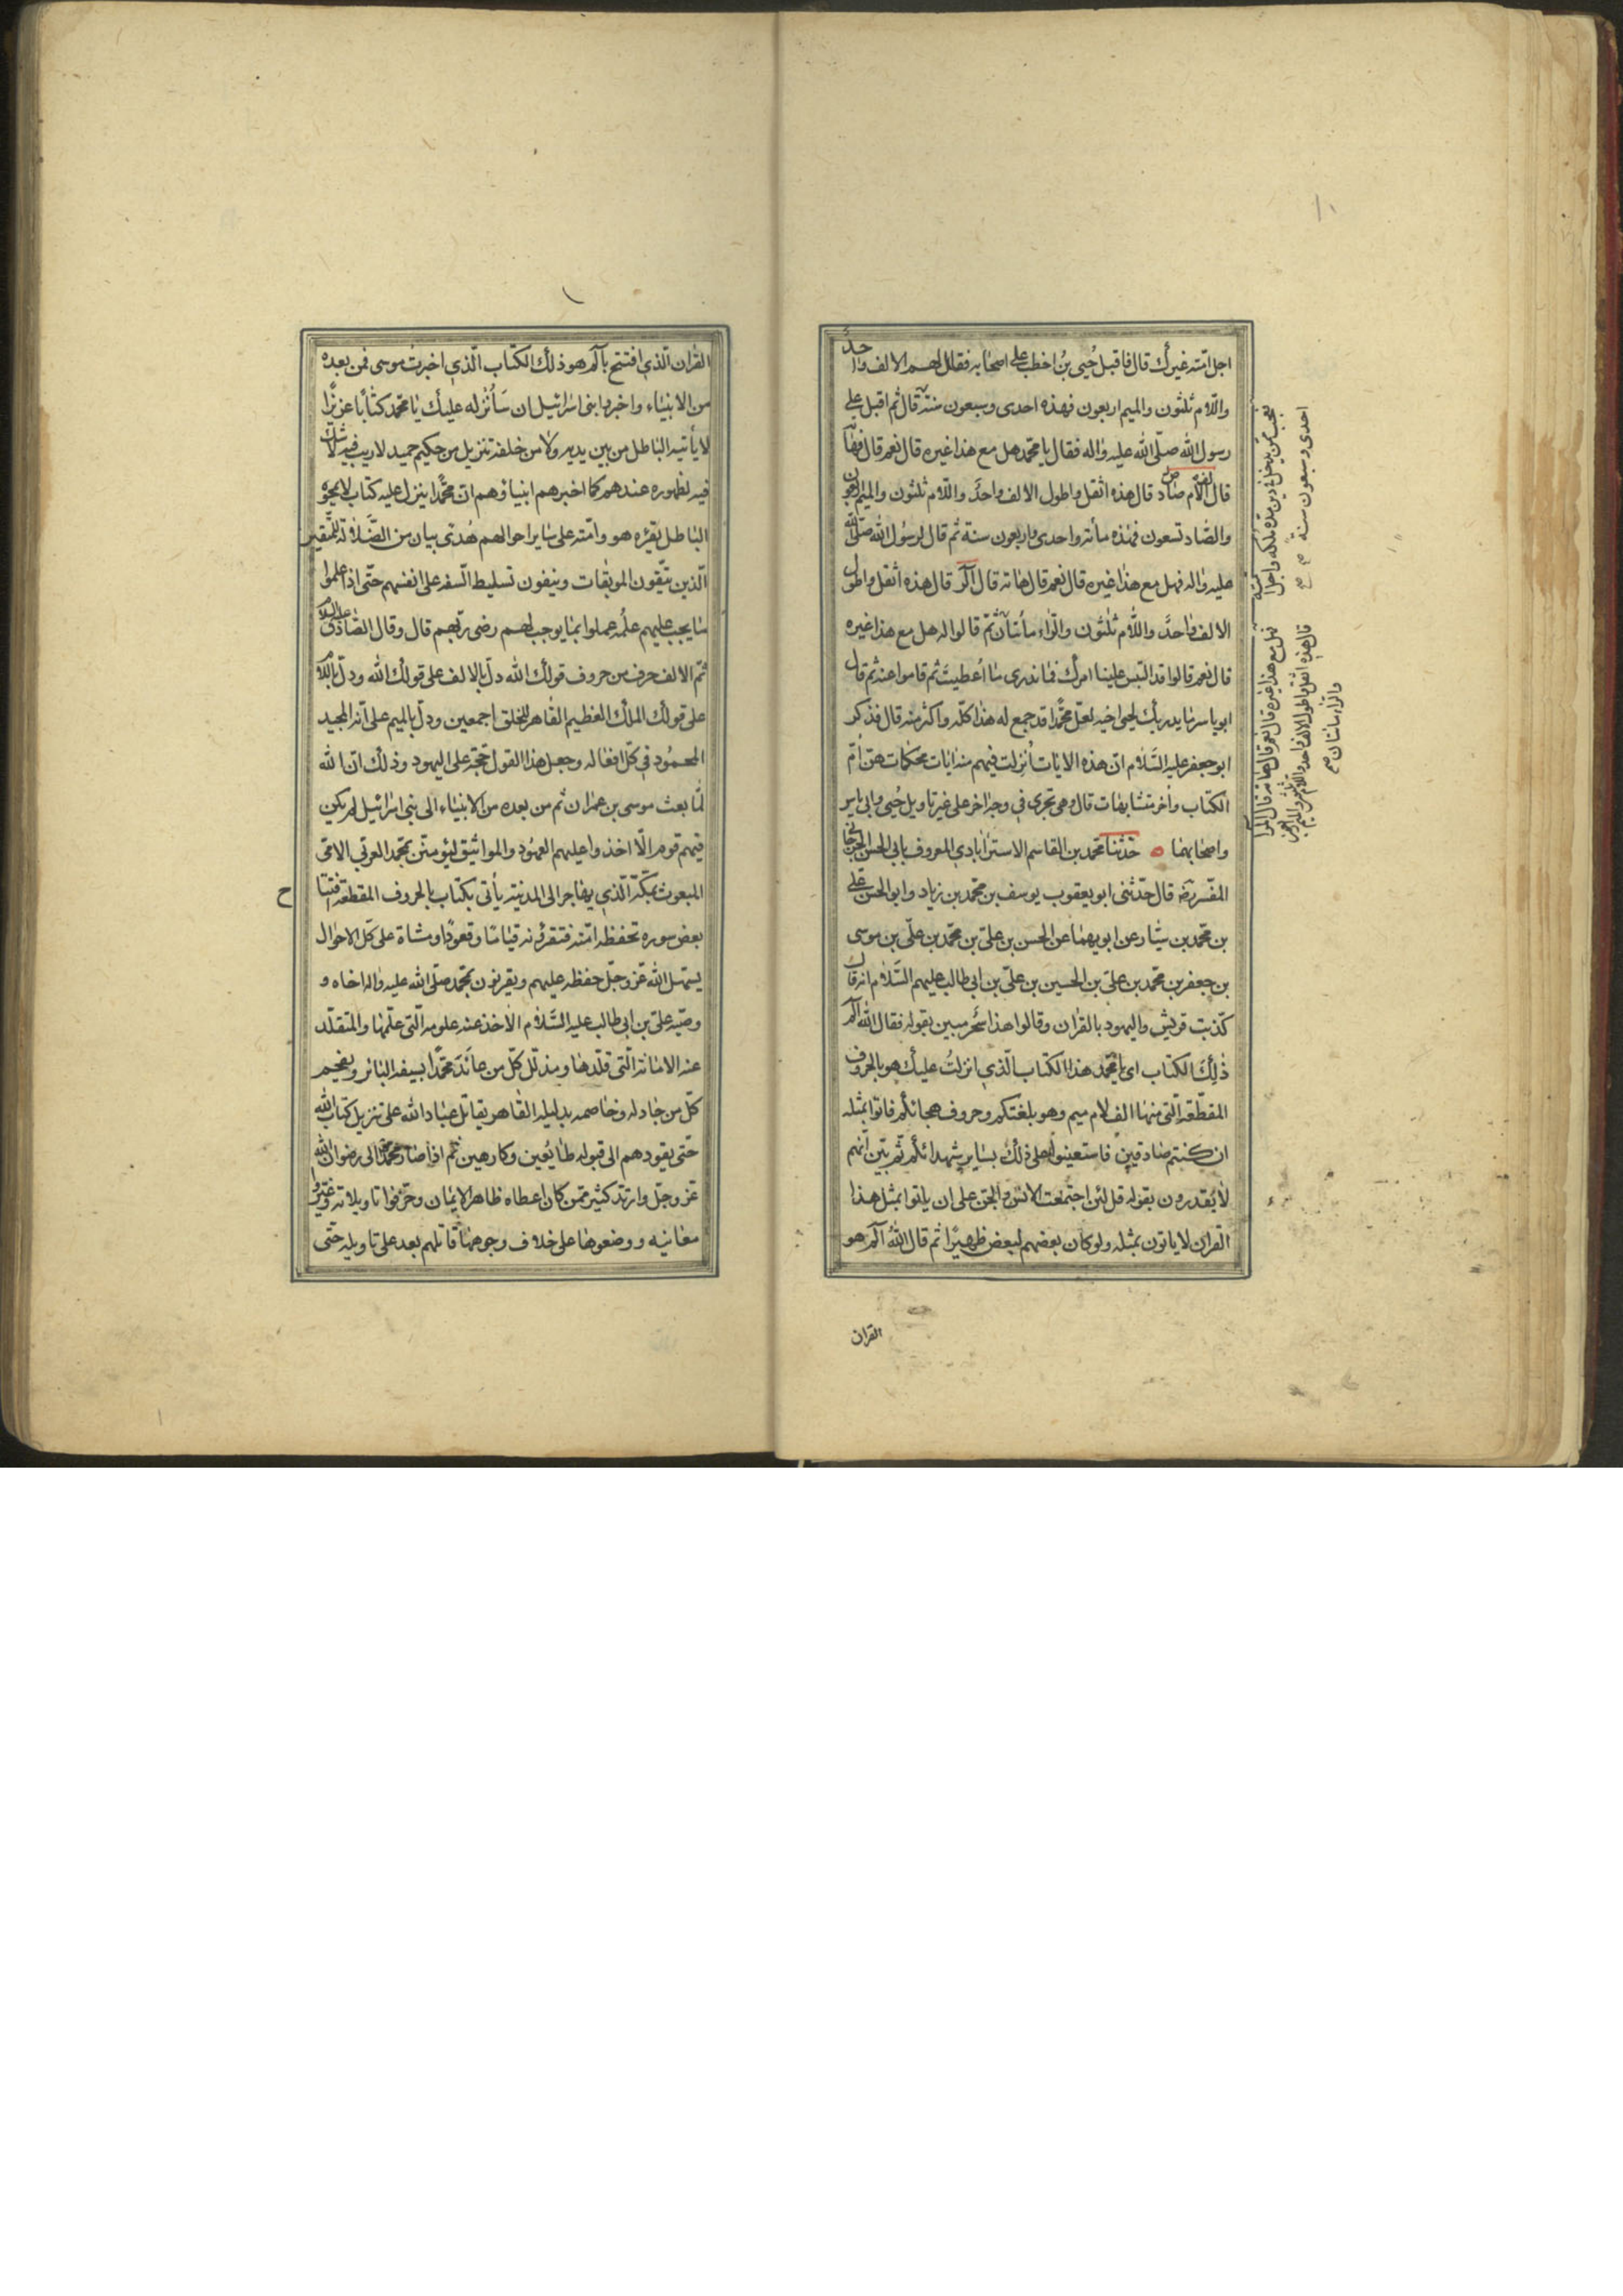 اجل امّته غيرك قال فاقبل حُيى بنُ اخطب على اصحابه فقال لهم الالف واحدٌ
واللام ثلثون والميم اربعون فهذه احدى وسبعون سنة قال ثم اقبل على
رسول الله صلّى الله عليه واله فقال يا محمّد هل مع هذا غيره قال نعم قال فهاته
قال المص قال هذه اثقل واطول الالف واحدٌ واللام ثلثون والميم اربعون
والصّاد تسعون فهذه مأته واحدى واربعون سنة ثم قال لرسول الله صلّى الله
عليه واله فهل مع هذا غيره قال نعم قال هاته قال الٓر قال هذه اثقل واطول
الالف واحدٌ واللّام ثلثون والرّاء مأتان ثمّ قالوا له هل مع هذا غيره
قال نعم قالوا قد التبس علينا امرك فما ندرى ما اُعطيت ثم قاموا عنه ثم قال
ابو ياسر لحيى اخيه لعلّ محمّدا قد جمع له هذا كلّه واكثر منه قال فذكر
ابو جعفر عليه السّلام انّ هذه الايات اُنزلت فيهم منه ايات محكمات هنّ امّ
الكتاب واُخر متشابهات قال وهى تجرى فى وجه اخر على غير تاويل حُيى وابى ياسر
واصحابهما ه حدّثنا محمد بن القاسم الاسترابادي المعروف بابى الحسن الجرجانى
المفسّر رضه قال حدّثنى ابو يعقوب يوسف بن محمّد بن زياد وابو الحسن على
بن محمّد بن سيّار عن ابويهما عن الحسن بن علىّ بن محمّد بن علىّ بن موسى
بن جعفر بن محمّد بن علىّ بن الحسين بن علىّ بن ابى طالب عليهم السَّلام انه قال
كذّبت قريش واليهود بالقران وقالوا هذا سحر مبين بقوله فقال الله الٓمٓ
ذٰلِكَ الكتاب اى يا محمّد هذا الكتاب الّذي انزلتُ عليك هو بالحروف
المقطّعة الّتى منها الف لام ميم وهو بلغتكم وحروف هجائكم فاتوا بمثله
ان كنتم صادقين فاستعينوا على ذلك بساير شهدائكم ثم بيّن انّهم
لا يقدرون بقوله قل لئن اجتمعت الانس والجنّ على ان ياتوا بمثل هذا
القران لا ياتون بمثله ولو كان بعضهم لبعض ظهيرًا ثم قال اللهُ الٓم هو
القران
احدى وسبعون سنة
فهل مع هذا غيره قال نعم قال هاته قال المر
قال هذه اثقل واطول الالف واحد واللام ثلثون والميم اربعون
والرّاء مائتان صح
القران الّذي افتتح بالٓم هو ذلك الكتاب الّذي اخبرت موسى فمن بعده
من الانبياء واخبروا بنى اسرائيل ان سَاُنْزله عليك يا محمّد كتابًا عزيزًا
لا يأتيه الباطل من بين يديه ولا من خلفه تنزيل من حكيم حميد لا ريب فيه لا شك
فيه لظهوره عندهم كما اخبرهم انبياؤهم انّ محمّدا ينزل عليه كتاب لا يمحوه
الباطل يقرؤه هو وامّته على ساير احوالهم هُدًى بيان من الضَّلالة للمُتَّقين
الّذين يتّقون الموبقات ويتقون تسليط السّفه على انفسهم حتّى اذا علموا
ما يجب عليهم علمُه عملوا بما يوجب لهم رضى ربّهم قال وقال الصّادق عليه السلام
ثمّ الالف حرف من حروف قولك الله دلّ بالالف على قولك الله ودلّ باللام
على قولك الملك العظيم القاهر للخلق اجمعين ودلّ بالميم على انّه المجيد
المحمُود فى كلّ افعاله وجعل هذا القول حجّة على اليهود وذلك انّ الله
لمّا بعث موسى بن عمران ثم من بعده من الانبياء الى بنى اسرائيل لم يكن
فيهم قوم الّا اخذوا عليهم العهُود والمواثيق ليؤمننّ بمحمّد العربىّ الامّى
المبعوث بمكّة الّذي يهاجر الى المدينة يأتى بكتاب بالحروف المقطعة افتتاح
بعض سوره تحفظه امّته فتقرؤنه قيامًا وقعودًا ومشاة على كلّ الاحوال
يسهّل الله عزّ وجلّ حفظه عليهم ويقرنون بمحمّد صلّى الله عليه واله اخاه و
وصيّه علىّ بن ابى طالب عليه السَّلام الاخذ عنه علومه الّتى علّمها والمتقلّد
عنه الامانة الّتى قلّدها ومذلّل كلّ من عانَدَ محمّدًا بسيفه الباتر ويفحم
كلّ من جادله وخاصمه بدليله القاهر يقاتل عباد الله على تنزيل كتاب الله
حتّى يقودهم الى قبوله طائعين وكارهين ثم اذا صار محمّد الى رضوان الله
عزّ وجلّ وارتدّ كثير ممّن كان اعطاه ظاهر الايمان وحرّفوا تاويلاته وغيّروا
معانيه ووضعوها على خلاف وجوهها قاتلهم بعد على تاويله حتّى